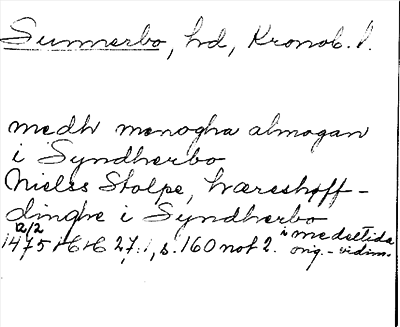 Sunnerbo, hd, Kronob. l.
medh menogha almogan
i Syndherbo
Nielss Stolpe, hæreshöff-
dinghe i Syndherbo
12/2
1475 HH 27:1, s. 160 not 2. i medeltida
orig.-vidim.